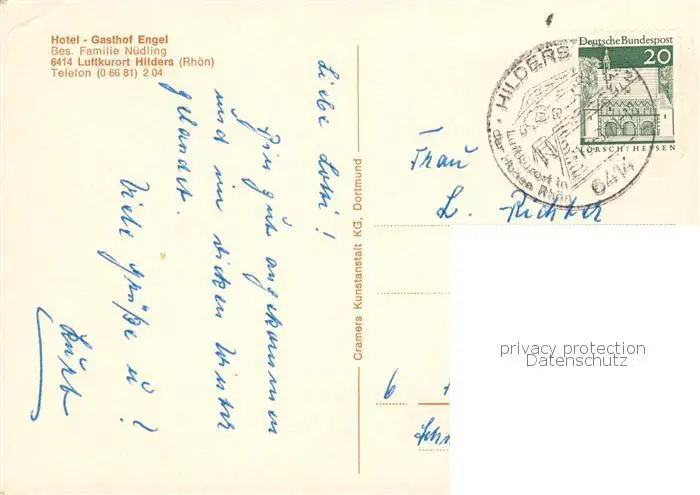 Hotel - Gasthof Engel
Bes. Familie Nüdling
6414 Luftkurort Hilders (Rhön)
Telefon (0 66 81) 2 04
Liebe Lotti!
Bin gut angekommen
und im dicken Winter
gelandet.
Viele Grüße
Kurt
Cramers Kunstanstalt KG, Dortmund
HILDERS
Luftkurort in
der Hohen Rhön
6414
Deutsche Bundespost
20
LORSCH/HESSEN
Frau
L. Richter
6
privacy protection
Datenschutz